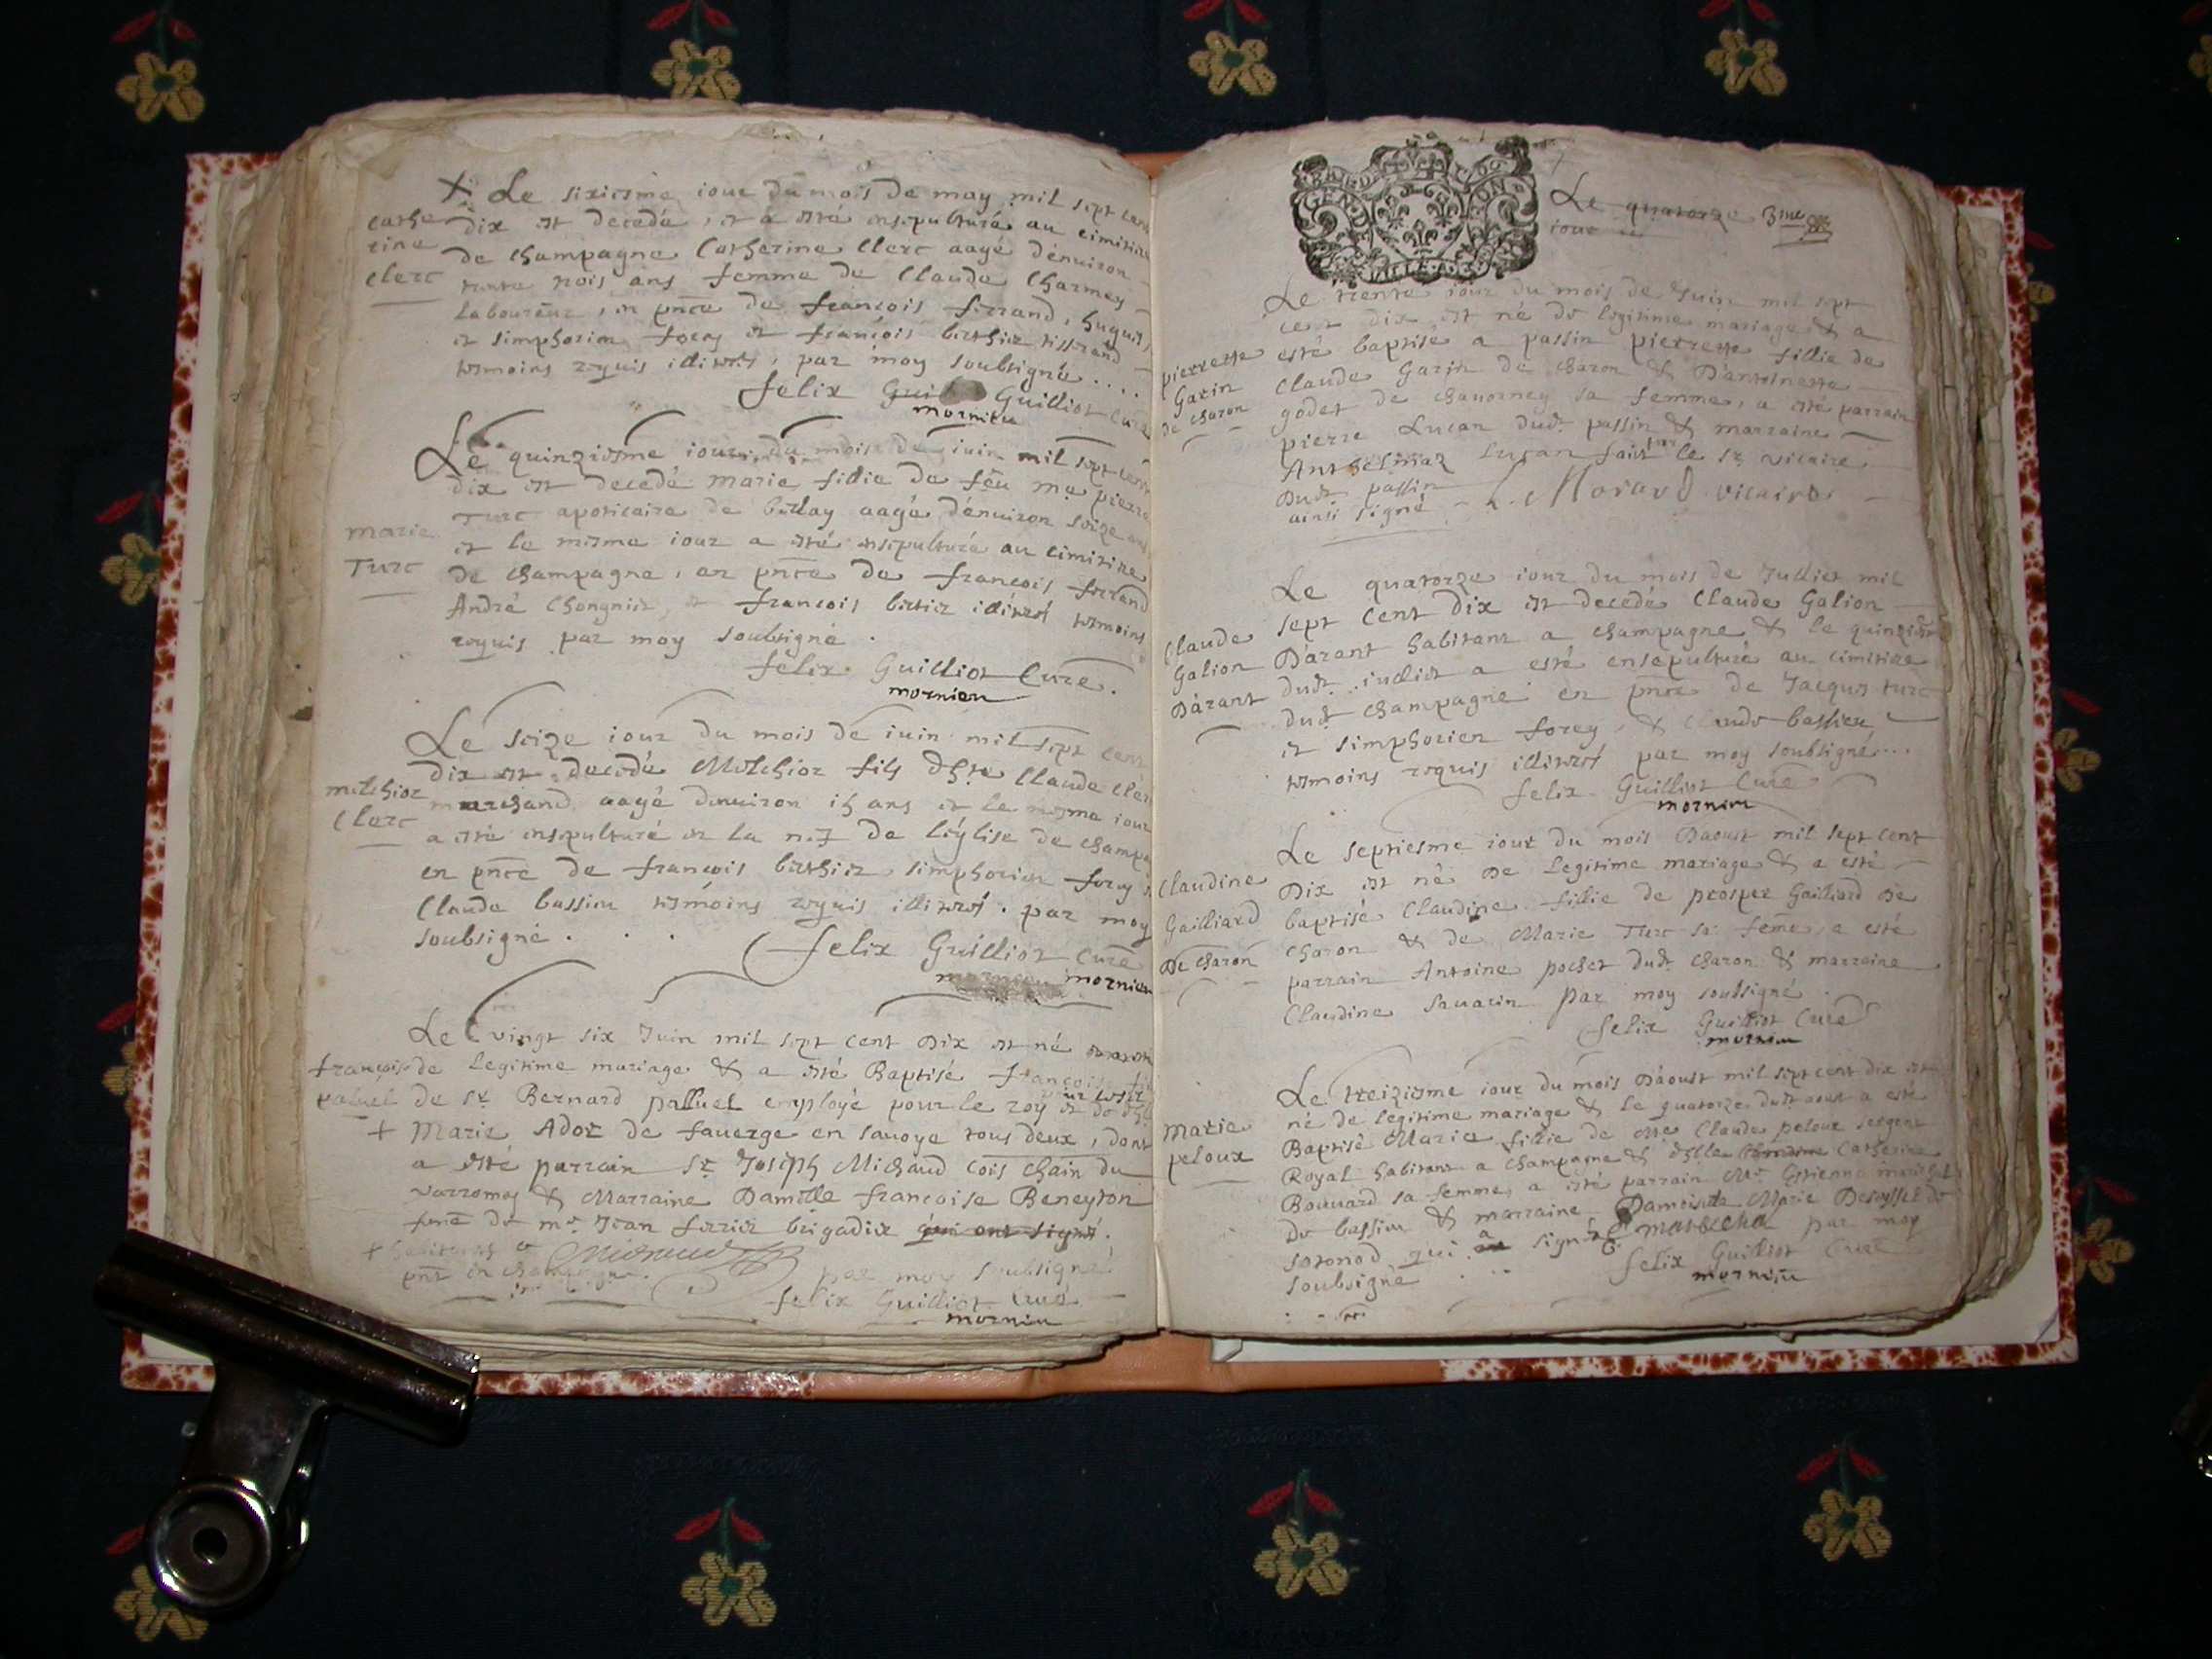 + Le sixiesme iour du mois de may mil sept cent
cathe
rine
Clerc
dix est decedé, et a esté ensepulturé au cimitiere
de champagne Catherine Clerc aagé denuiron
trente trois ans femme de Claude Charmey
Laboureur, en pnce de françois ferrand, hugues
et simphorien forey et françois berthier tisserand
temoins requis illiterés, par moy soubsigné....
felix Guilliot Curé
mornieu
Le quinziesme iour du mois de iuin mil sept cent
dix est decedé marie fillie de feu me pierre
Marie
Turc
Turc apoticaire de aagé denuiron seize ans
et le mesme iour a esté ensepulturé au cimitiere
de champagne, en pnce de françois ferrand
André Chongnier, et françois bertier illiterés temoins
requis par moy soubsigné.
felix Guilliot Curé.
mornieu
Le seize iour du mois de iuin mil sept cent
dix est decedé Melchior fils Claude Clerc
melchior
Clerc
marchand aagé denuiron ans et le mesme iour
a esté ensepulturé en la nef de léglise de champagne
en pnce de françois berthier simphorien forey
Claude bassieu temoins requis illiterés. par moy
soubsigné . . .
felix Guilliot Curé
mornieu
Le vingt six Juin mil sept cent Dix est né
françois
paluel
de Legitime mariage & a esté Baptisé françois
de sr Bernard palluel employé pour le roy
+ Marie Ador de fauerge en sauoye tous deux, dont
a esté parrain sr Joseph Michaud Cois Chain du
varromey & Marraine Damlle françoise Beneyton
feme de mr Jean ferrier brigadier qui ont signé.
+ habitans et
pnt en champagne.
par moy soubsigné
felix Guilliot Curé
mornieu
GEND
Le quatorze 3me
iour
Le trente iour du mois de Juin mil sept
cent dix est né de legitime mariage & a
pierrette
Garin
de charon
esté baptisé a passin pierrette fillie de
Claude Garin de Charon & D'antoinette
godet de chauorney sa femme, a esté parrain
pierre Lucan dudt passin & marraine
Anthelmaz Lucan fait par le sr vicaire
Dudt passin
ainsi signé - vicaire
Le quatorze iour du mois de Julliet mil
sept Cent Dix est decedé Claude Galion
Claude
Galion
Dárant
Dárant habitant a champagne & le quinziesme
dudt julliet a esté ensepulturé au cimitiere
dudt champagne en pnce de Jacques turc
et simphorien forey, & Claude bassieu
temoins requis illiterés par moy soubsigné...
felix Guilliot Curé
mornieu
Le septiesme iour du mois Daoust mil sept cent
Claudine
Gailliard
De Charon
Dix est né De Legitime mariage & a esté
baptisé Claudine fillie de prosper Gailliard De
Charon & de Marie Turc sa feme, a esté
parrain Antoine pochet dudt Charon & marraine
Claudine sauarin par moy soubsigné
felix Guilliot Curé
mornieu
Le treiziesme iour du mois D'aoust mil sept cent dix est
né de legitime mariage & le quatorze dudt aout a esté
Marie
peloux
Baptisé Marie fillie de Me Claude peloux sergent
Royal habitant a champagne & Catherine
Bouuard sa femme, a esté parrain Mr Estienne
de bassieu & marraine Damoiselle Marie
sotonod qui a signé par moy
soubsigné . . .
felix Guilliot Curé
mornieu